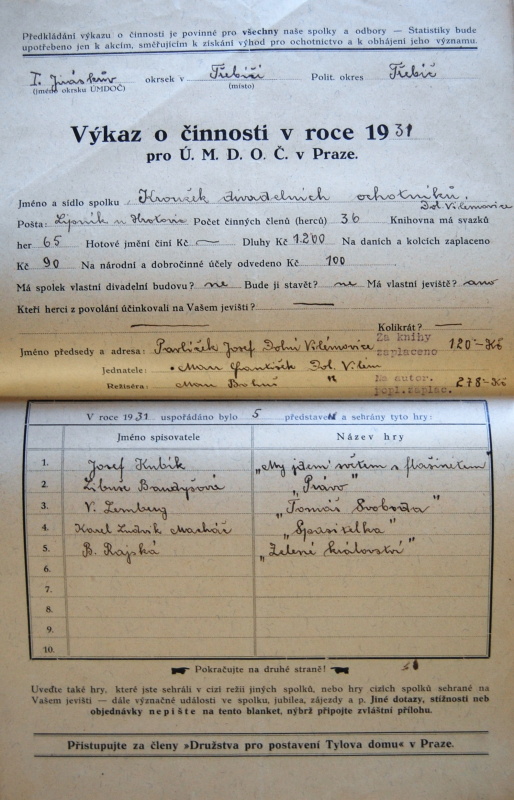 Předkládání výkazu o činnosti je povinné pro všechny naše spolky a odbory — Statistiky bude
upotřebeno jen k akcím, směřujícím k získání výhod pro ochotnictvo a k obhájení jeho významu.
I. Jiráskův okrsek v Třebíči Polit. okres Třebíč
(jméno okrsku ÚMDOČ) (místo)
Výkaz o činnosti v roce 1931
pro Ú. M. D. O. Č. v Praze.
Jméno a sídlo spolku Kroužek divadelních ochotníků,
Dol. Vilémovice
Pošta: Lipník u Hrotovic Počet činných členů (herců) 36 Knihovna má svazků
her 65 Hotové jmění činí Kč — Dluhy Kč 1.200 Na daních a kolcích zaplaceno
Kč 90 Na národní a dobročinné účely odvedeno Kč 100
Má spolek vlastní divadelní budovu? ne Bude ji stavět? ne Má vlastní jeviště? ano
Kteří herci z povolání účinkovali na Vašem jevišti? —
— Kolikrát? —
Za knihy
zaplaceno 120·-Kč
Jméno předsedy a adresa: Pavlíček Josef Dolní Vilémovice
Jednatele: František Dol. Vilém
Režiséra: "
Na autor.
popl.zaplac. 278·-Kč
V roce 1931 uspořádáno bylo 5 představení a sehrány tyto hry:
Jméno spisovatele Název hry
1. Josef Kubík „My jdem světem s flašinetem"
2. Libuše Baudyšová „Právo"
3. V. Lemberg „Tomáš Svoboda"
4. Karel Ludvík Macháč „Spasitelka"
5. B. Rajská „Zelené království"
6.
7.
8.
9.
10.
Pokračujte na druhé straně!
Uveďte také hry, které jste sehráli v cizí režii jiných spolků, nebo hry cizích spolků sehrané na
Vašem jevišti — dále význačné události ve spolku, jubilea, zájezdy a p. Jiné dotazy, stížnosti neb
objednávky nepište na tento blanket, nýbrž připojte zvláštní přílohu.
Přistupujte za členy »Družstva pro postavení Tylova domu« v Praze.